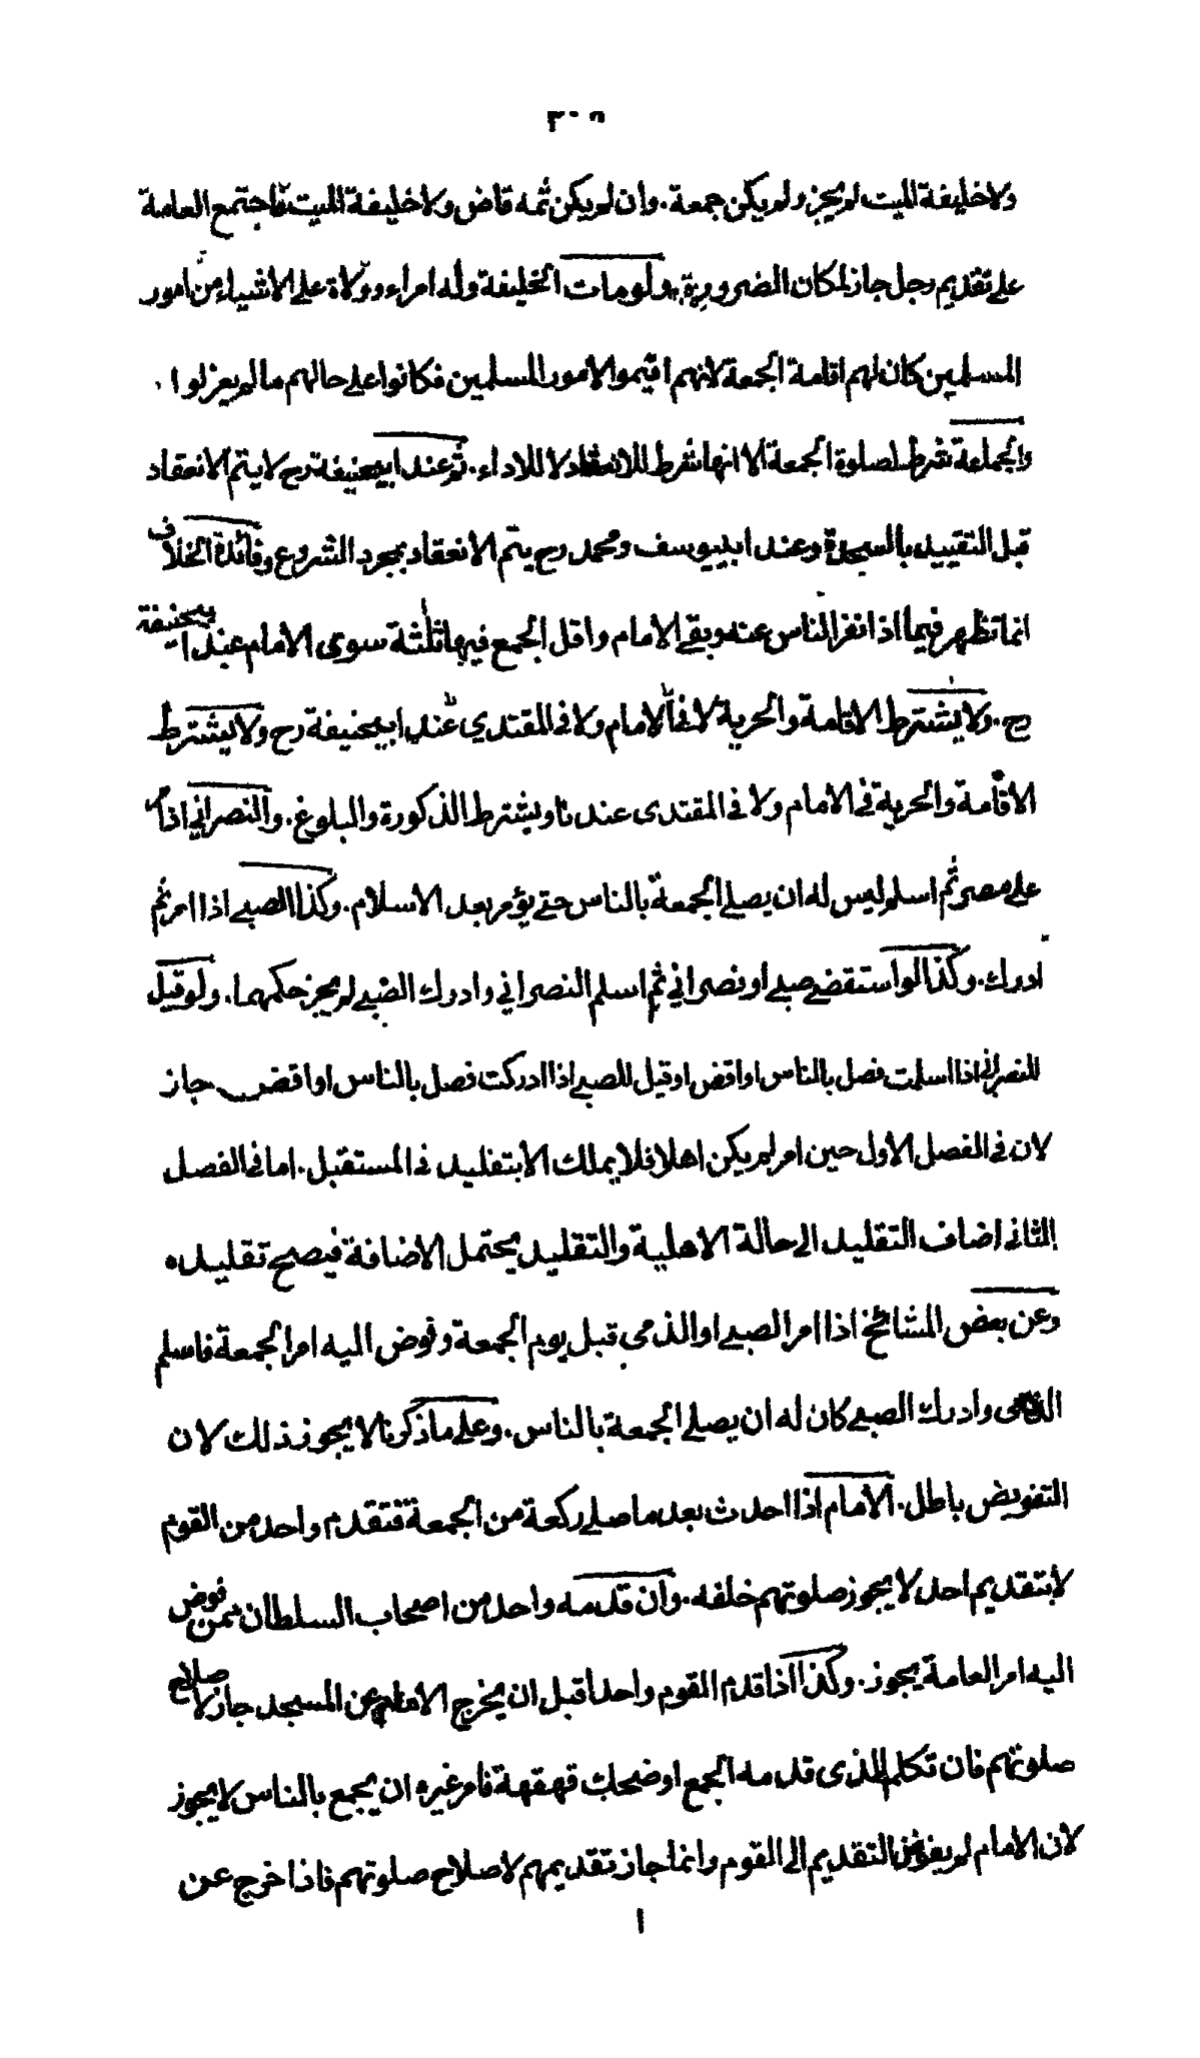 ولا خليفة الميت لم يجز ولم يكن جمعة. وان لم يكن ثمه قاض ولا خليفة الميت فاجتمع العامة
على تقديم رجل جاز لمكان الضرورة. ولو مات الخليفة وله امراء وولاة على الاشياء من امور
المسلمين كان لهم اقامة الجمعة لانهم اقيموا لامور المسلمين فكانوا على حالهم ما لم يعزلوا.
والجماعة شرط لصلوة الجمعة الا انها شرط للانعقاد لا للاداء. ثم عند ابيحنيفة رح لا يتم الانعقاد
قبل التقييد بالسجدة وعند ابييوسف ومحمد رح يتم الانعقاد بمجرد الشروع وفائدة الخلاف
انما تظهر فيما اذا نفر الناس عنه وبقي الامام واقل الجمع فيها ثلثة سوى الامام عند ابيحنيفة
رح. ولا يشترط الاقامة والحرية لا في الامام ولا في المقتدي عند ابيحنيفة رح ولا يشترط
الاقامة والحرية في الامام ولا في المقتدى عندنا ويشترط الذكورة والبلوغ. والنصراني اذا
على مصر ثم اسلم ليس له ان يصلي الجمعة بالناس حتى يؤمر بعد الاسلام. وكذا الصبي اذا امر ثم
ادرك. وكذا لو استقضي صبي او نصراني ثم اسلم النصراني وادرك الصبي لم يجز حكمهما. ولو قيل
للنصراني اذا اسلمت فصل بالناس او اقض او قيل للصبي اذا ادركت فصل بالناس او اقض جاز
لان في الفصل الاول حين امر لم يكن اهلا فلا يملك الا بتقليد في المستقبل. اما في الفصل
الثاني اضاف التقليد الى حالة الاهلية والتقليد يحتمل الاضافة فيصح تقليده
وعن بعض المشائخ اذا امر الصبي او الذمي قبل يوم الجمعة وفوض اليه امر الجمعة فاسلم
الذمي وادرك الصبي كان له ان يصلي الجمعة بالناس. وعلى ما ذكرنا لا يجوز ذلك لان
التفويض باطل. الامام اذا احدث بعد ما صلى ركعة من الجمعة فتقدم واحد من القوم
لا بتقديم احد لا يجوز صلوتهم خلفه. وان قدمه واحد من اصحاب السلطان ممن فوض
اليه امر العامة يجوز. وكذا اذا قدم القوم واحدا قبل ان يخرج الامام عن المسجد جاز لاصلاح
صلوتهم فان تكلم الذى قدمه الجمع او ضحك قهقهة فامر غيره ان يجمع بالناس لا يجوز
لان الامام لم يفوض التقديم الى القوم وانما جاز تقديمهم لاصلاح صلوتهم فاذا خرج عن
ا